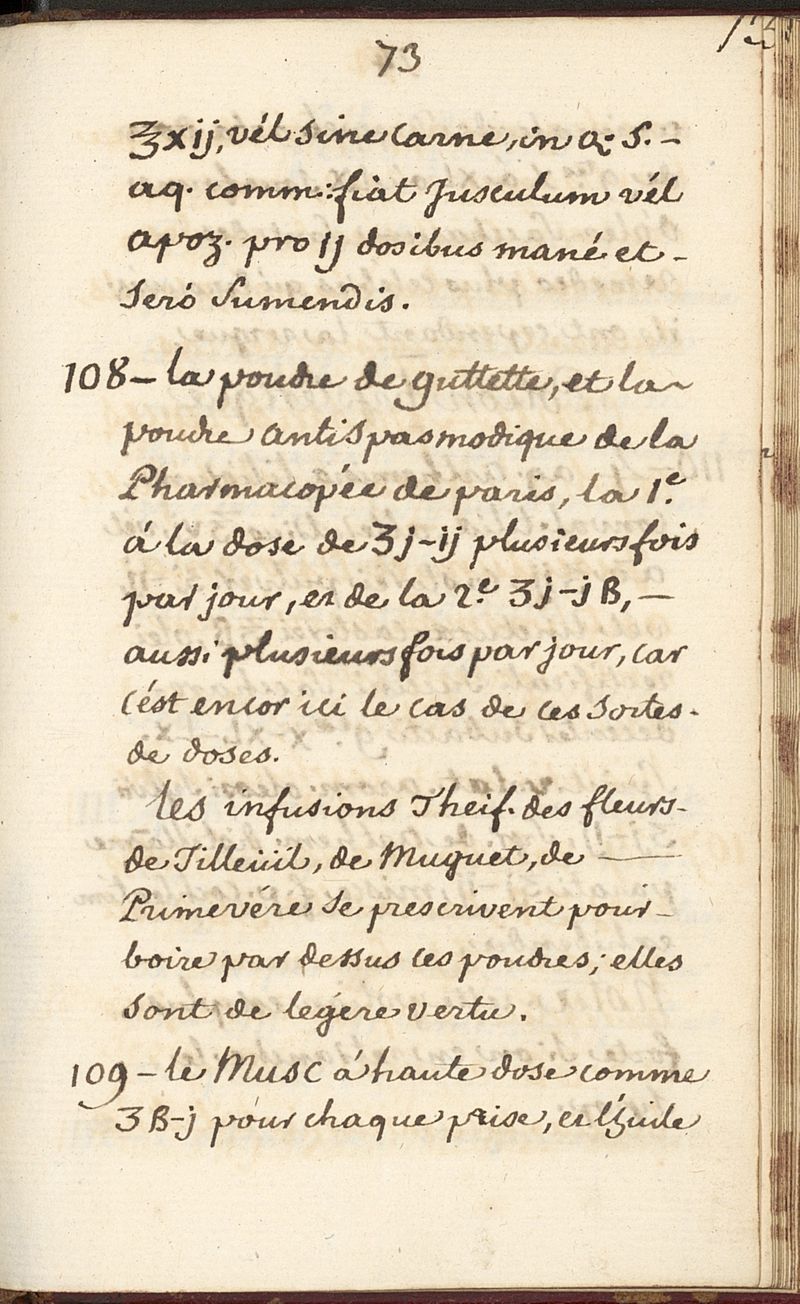 73
℥xij, vél sine carne, in q. S. -
aq. comm: fiat Jusculum vél
apoz. pro ij dosibus mané et -
seró sumendis.
108 - la poudre de guttette, et la ~
poudre antispasmodique de la
Pharmacopée de paris, la 1.e
á la dose de ʒj-ij plusieurs fois
par jour, et de la 2.e ʒj-jß, —
aussi plusieurs fois par jour, car
c'ést encor ici le cas de ces sortes -
de doses.
les infusions Theif. des fleurs -
de Tilleüil, de Muguet, de —
Primevére se prescrivent pour -
boire par dessus ces poudres; elles
sont de legére vertu.
109 - le Musc á haute dose comme
ʒß-j pour chaque prise, et l'huile